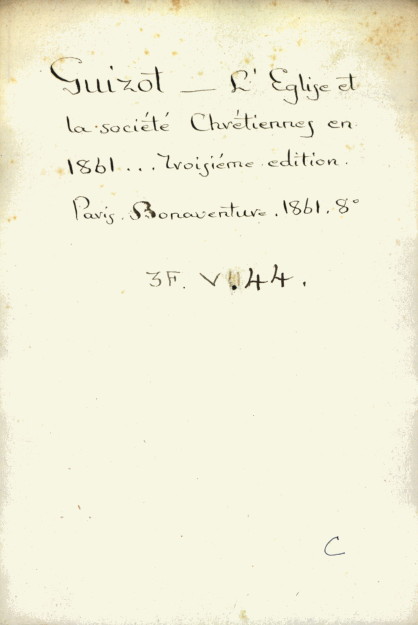 Guizot — L'Eglise et
la société Chrétiennes en
1861... Troisiéme edition.
Paris. Bonaventure. 1861. 8°
3F. V.44.
C